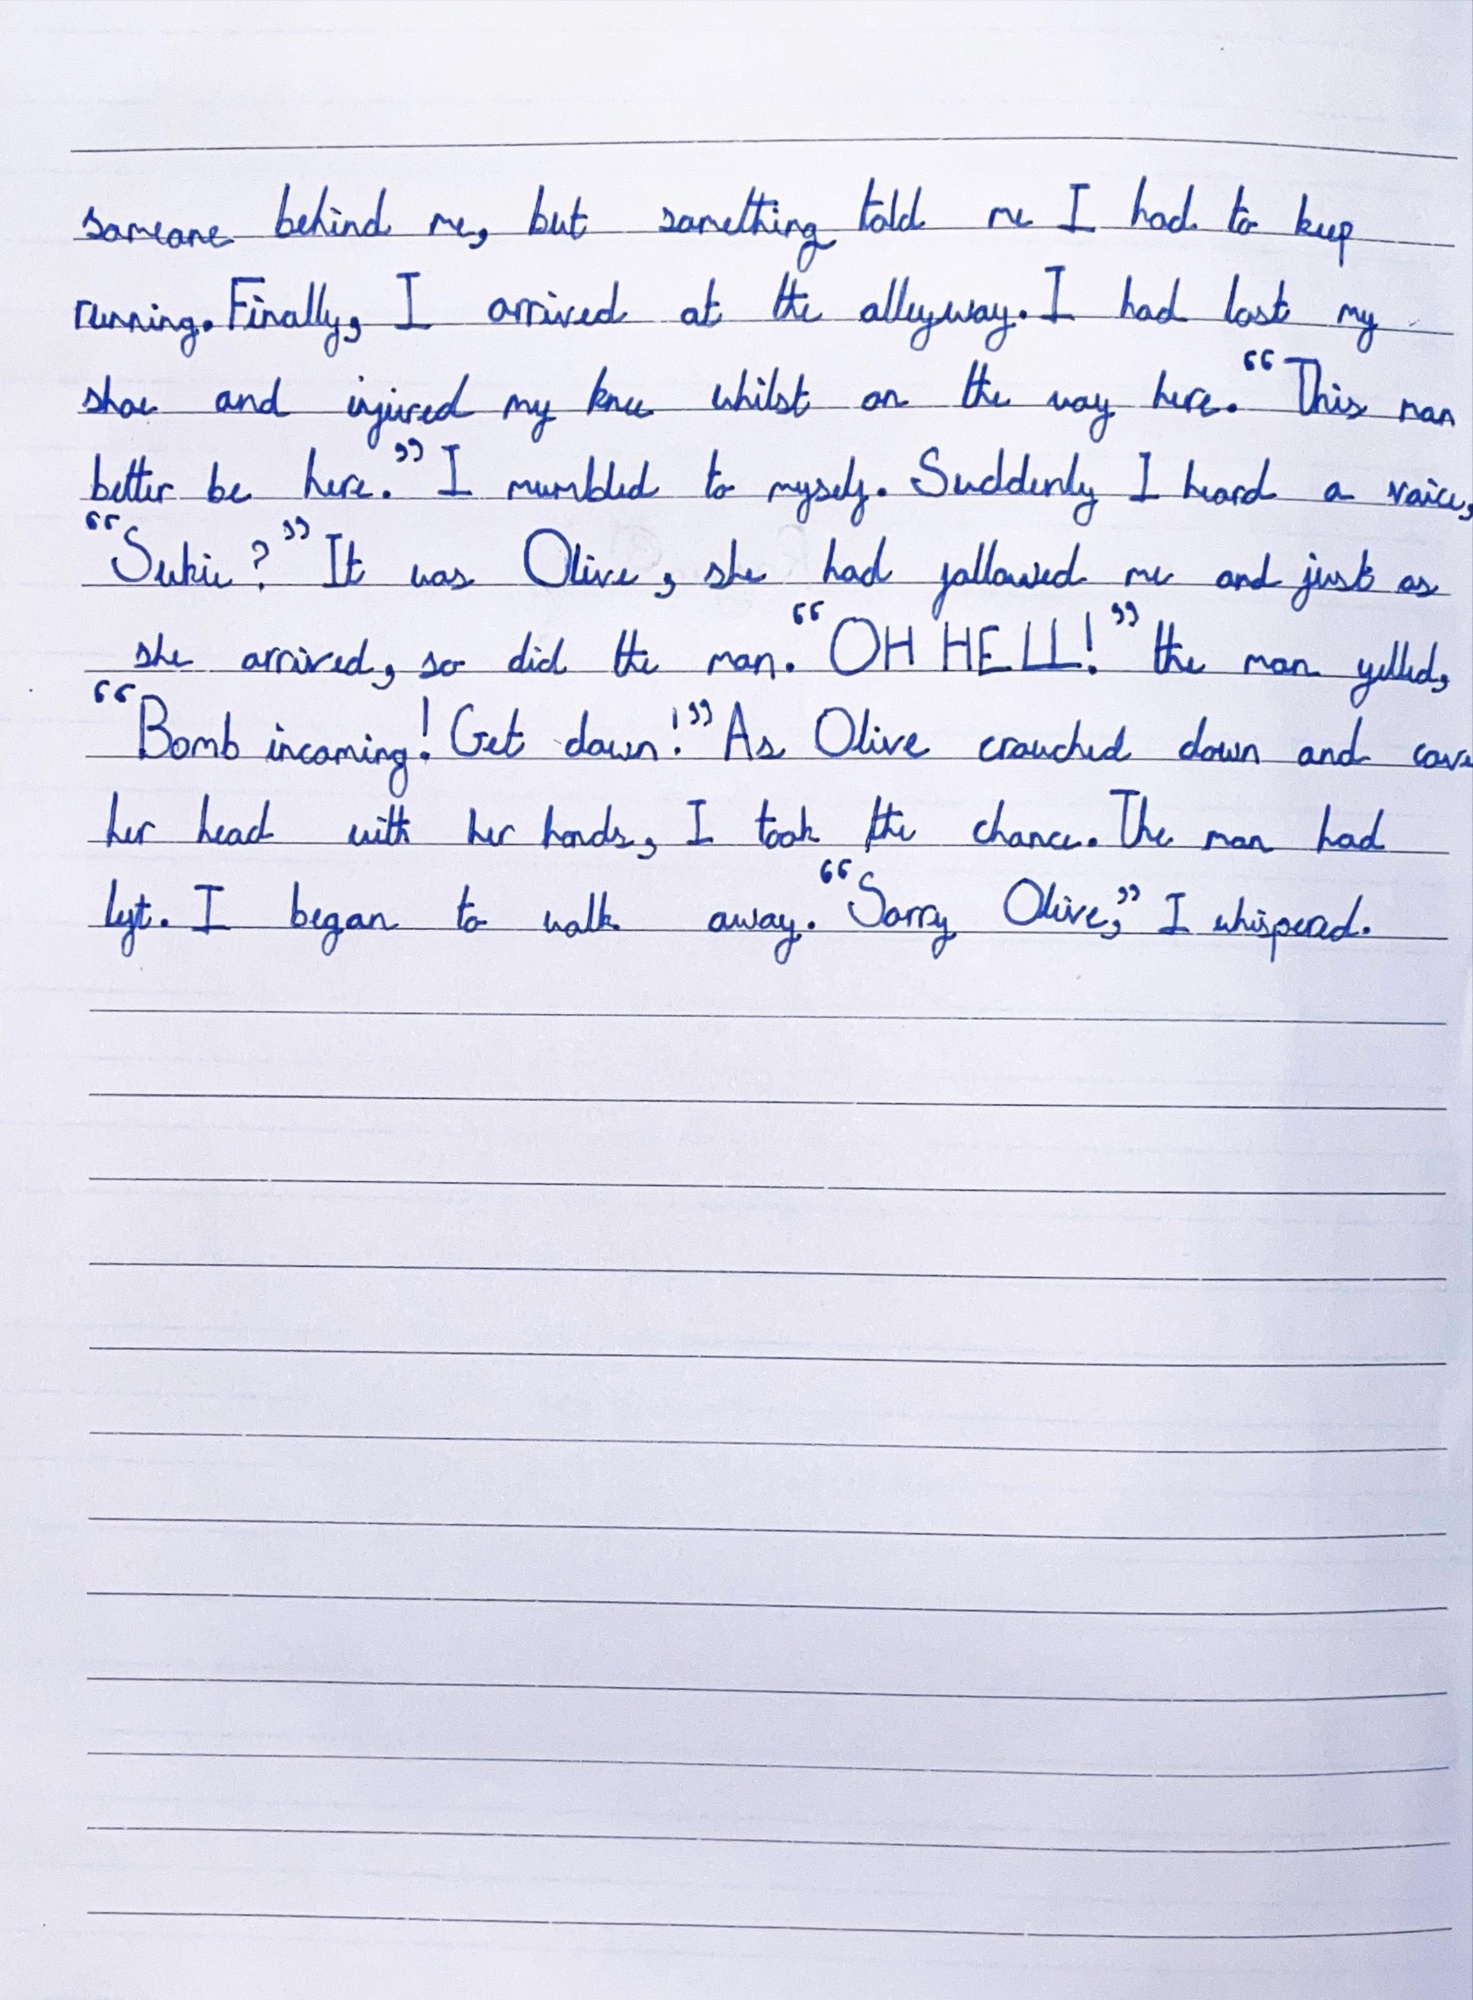 someone behind me, but something told me I had to keep
running. Finally, I arrived at the alleyway. I had lost my
shoe and injured my knee whilst on the way here. “This man
better be here.” I mumbled to myself. Suddenly I heard a voice,
“Sukie?” It was Olive, she had followed me and just as
she arrived, so did the man. “OH HELL!” the man yelled,
“Bomb incoming! Get down!” As Olive crouched down and
her head with her hands, I took the chance. The man had
left. I began to walk away. “Sorry Olive,” I whispered.